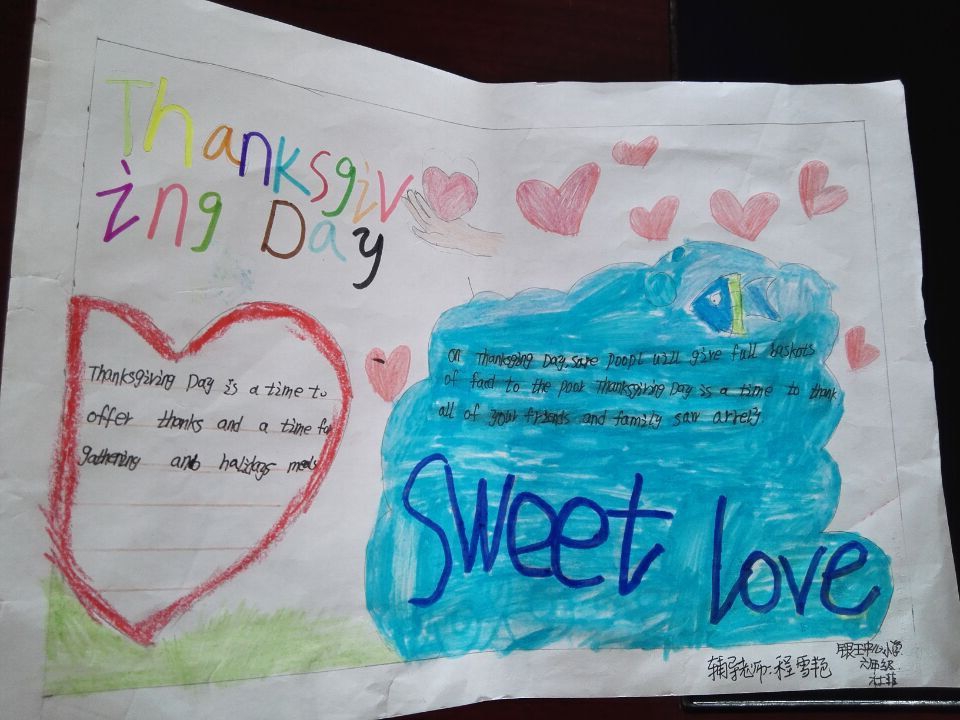 Thanksgiv
ing Day
Thanksgiving Day is a time to
offer thanks and a time for
gathering and holidays meals
On Thanksging Day. some poopl will give full baskets
of food to the poor Thanksgiving Day is a time to thank
all of your friends and family
sweet love
辅导老师:程雪艳
中心小学
六年级
杜菲